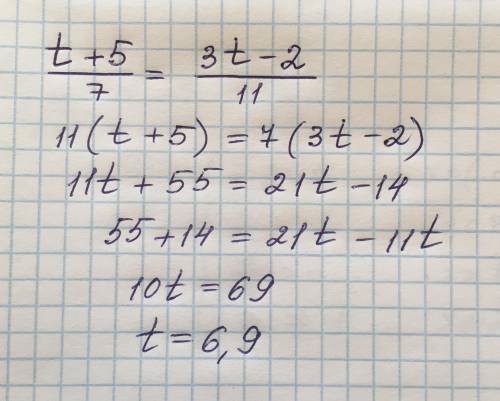 t + 5 / 7 = 3t - 2 / 11
11(t + 5) = 7(3t - 2)
11t + 55 = 21t - 14
55 + 14 = 21t - 11t
10t = 69
t = 6,9